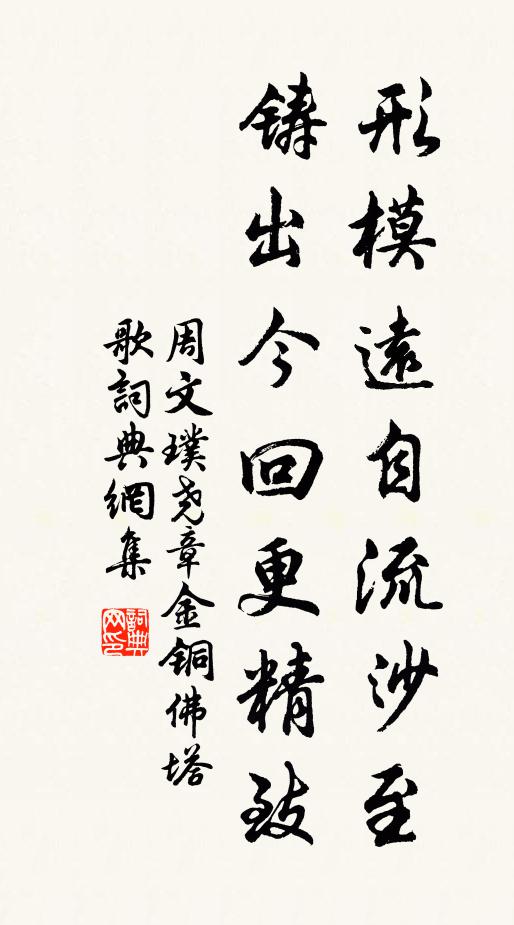 形模遠自流沙至
鑄出今回更精致
周文璞堯章金銅佛塔
歌詞典網集
詞典網印